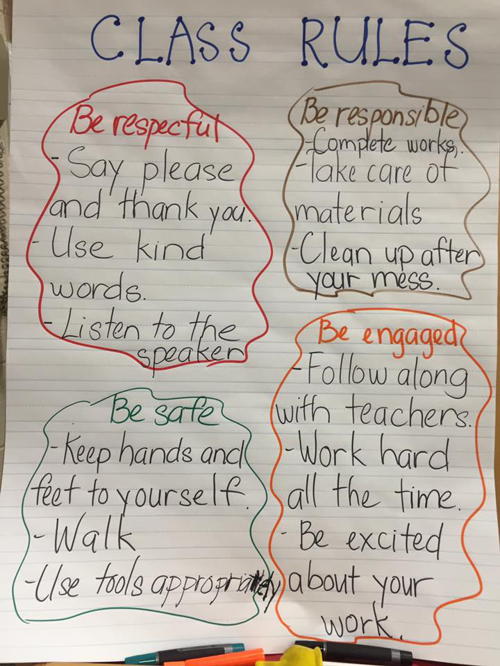 CLASS RULES
Be respecful
- Say please
and thank you.
- Use kind
words.
- Listen to the
speaker
Be responsible
- Complete works.
- Take care of
materials
- Clean up after
your mess.
Be safe
- Keep hands and
feet to yourself.
- Walk
- Use tools appropriately
Be engaged
- Follow along
with teachers.
- Work hard
all the time.
- Be excited
about your
work.